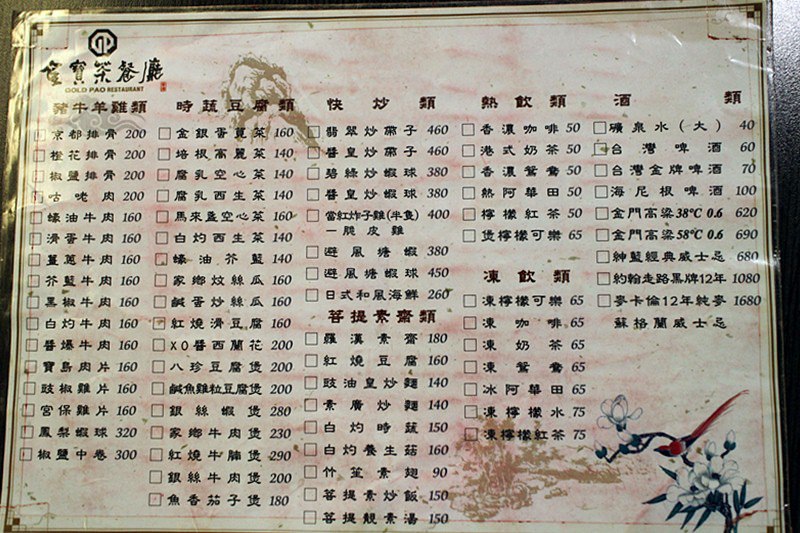 金寶茶餐廳
GOLD PAO RESTAURANT
豬牛羊雞類
京都排骨 200
橙花排骨 200
椒鹽排骨 200
咕咾肉 200
蠔油牛肉 160
滑蛋牛肉 160
薑蔥牛肉 160
芥藍牛肉 160
黑椒牛肉 160
白灼牛肉 160
醬爆牛肉 160
寶島肉片 160
豉椒雞片 160
宮保雞片 160
鳳梨蝦球 320
椒鹽中卷 300
時蔬豆腐類
金銀蛋莧菜 160
培根高麗菜 140
腐乳空心菜 140
腐乳西生菜 140
馬來盞空心菜 160
白灼西生菜 140
蠔油芥藍 140
家鄉炆絲瓜 160
鹹蛋炒絲瓜 160
紅燒滑豆腐 160
XO醬西蘭花 200
八珍豆腐煲 200
鹹魚雞粒豆腐煲 200
銀絲蝦煲 280
家鄉牛肉煲 230
紅燒牛腩煲 290
銀絲牛肉煲 200
魚香茄子煲 180
快炒類
翡翠炒帶子 460
醬皇炒帶子 460
碧綠炒蝦球 380
醬皇炒蝦球 380
當紅炸子雞(半隻) 400
一脆皮雞
避風塘蝦 380
避風塘蝦球 450
日式和風海鮮 260
菩提素齋類
羅漢素齋 180
紅燒豆腐 160
豉油皇炒麵 140
素廣炒麵 140
白灼時蔬 150
白灼養生菇 160
竹笙素翅 90
菩提素炒飯 150
菩提靚素湯 150
熱飲類
香濃咖啡 50
港式奶茶 50
香濃鴛鴦 50
熱阿華田 50
檸檬紅茶 50
煲檸檬可樂 65
凍飲類
凍檸檬可樂 65
凍咖啡 65
凍奶茶 65
凍鴛鴦 65
冰阿華田 65
凍檸檬水 75
凍檸檬紅茶 75
酒類
礦泉水(大) 40
台灣啤酒 60
台灣金牌啤酒 70
海尼根啤酒 100
金門高梁38°C 0.6 620
金門高梁58°C 0.6 690
紳藍經典威士忌 680
約翰走路黑牌12年 1080
麥卡倫12年純麥 1680
蘇格蘭威士忌